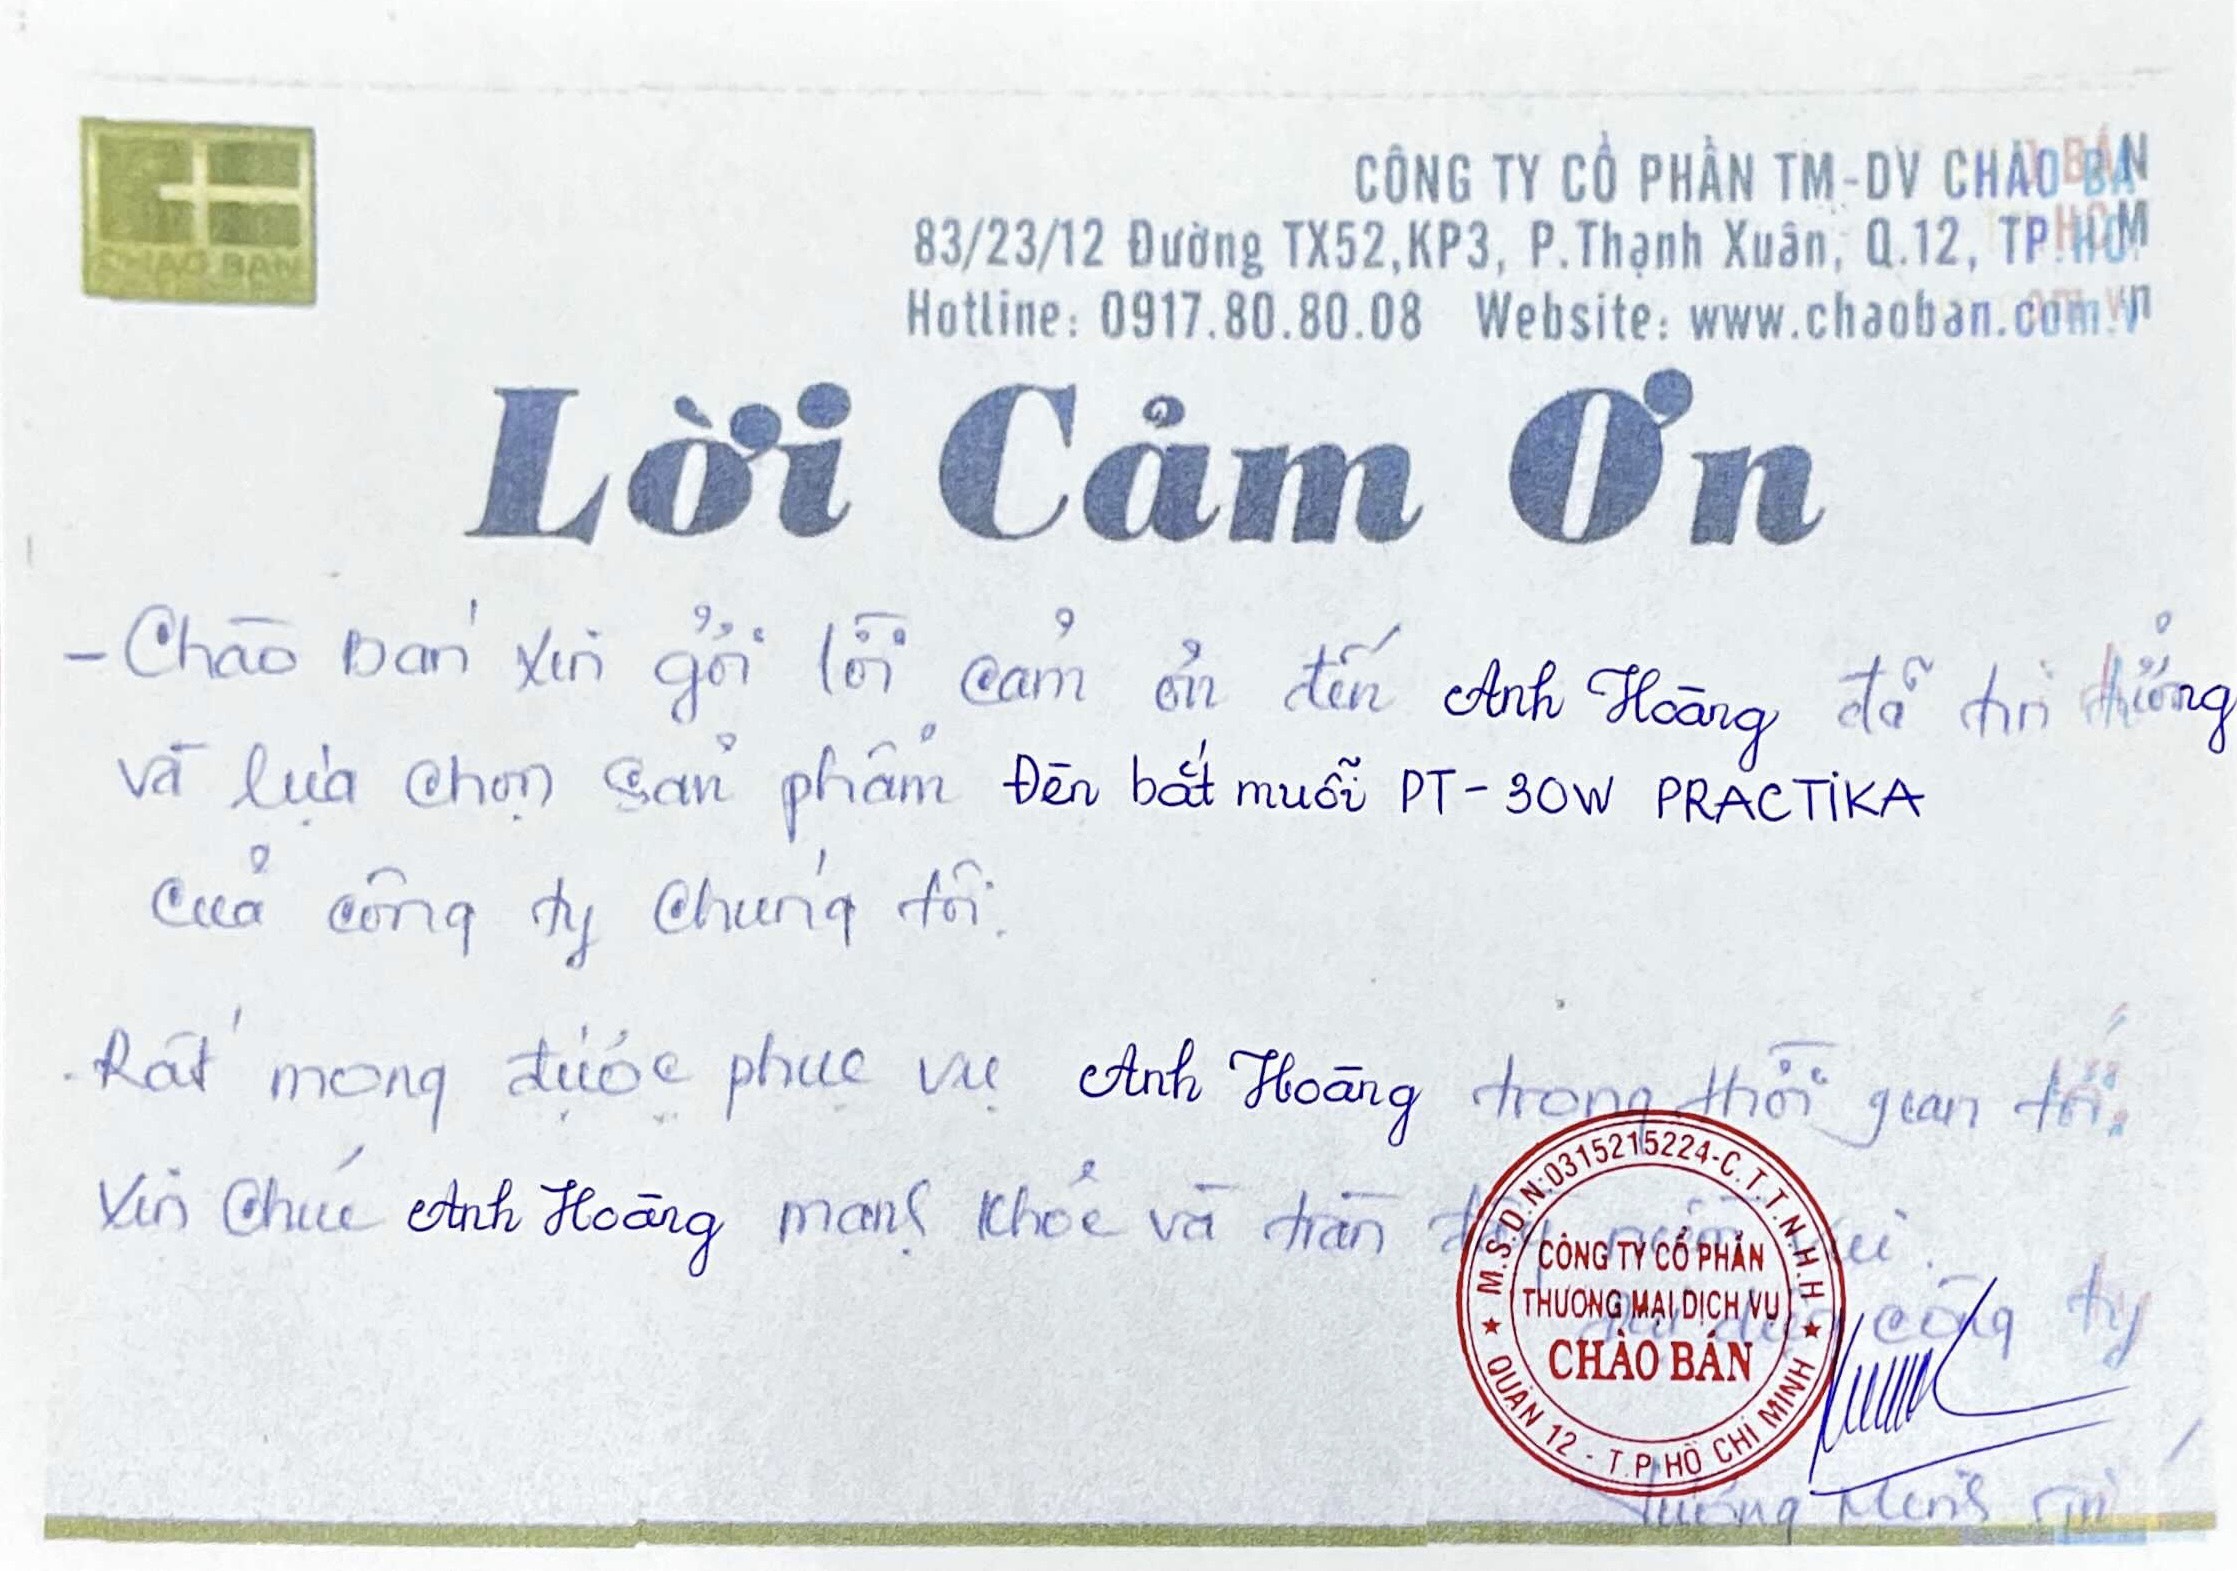 CHAO BAN
CÔNG TY CỔ PHẦN TM-DV CHÀO BÁN
83/23/12 Đường TX52,KP3, P.Thạnh Xuân, Q.12, TP.HCM
Hotline: 0917.80.80.08 Website: www.chaoban.com.vn
Lời Cảm Ơn
- Chào Bán xin gởi lời cảm ơn đến Anh Hoàng đã tin tưởng
và lựa chọn sản phẩm Đèn bắt muỗi PT-30W PRACTIKA
của công ty chúng tôi.
- Rất mong được phục vụ Anh Hoàng trong thời gian tới.
Xin chúc Anh Hoàng mạnh khỏe và tràn đầy niềm vui.
công ty
M.S.D.N:0315215224-C.T.T.N.H.H
CÔNG TY CỔ PHẦN
THƯƠNG MẠI DỊCH VỤ
CHÀO BÁN
QUẬN 12 - T.P HỒ CHÍ MINH